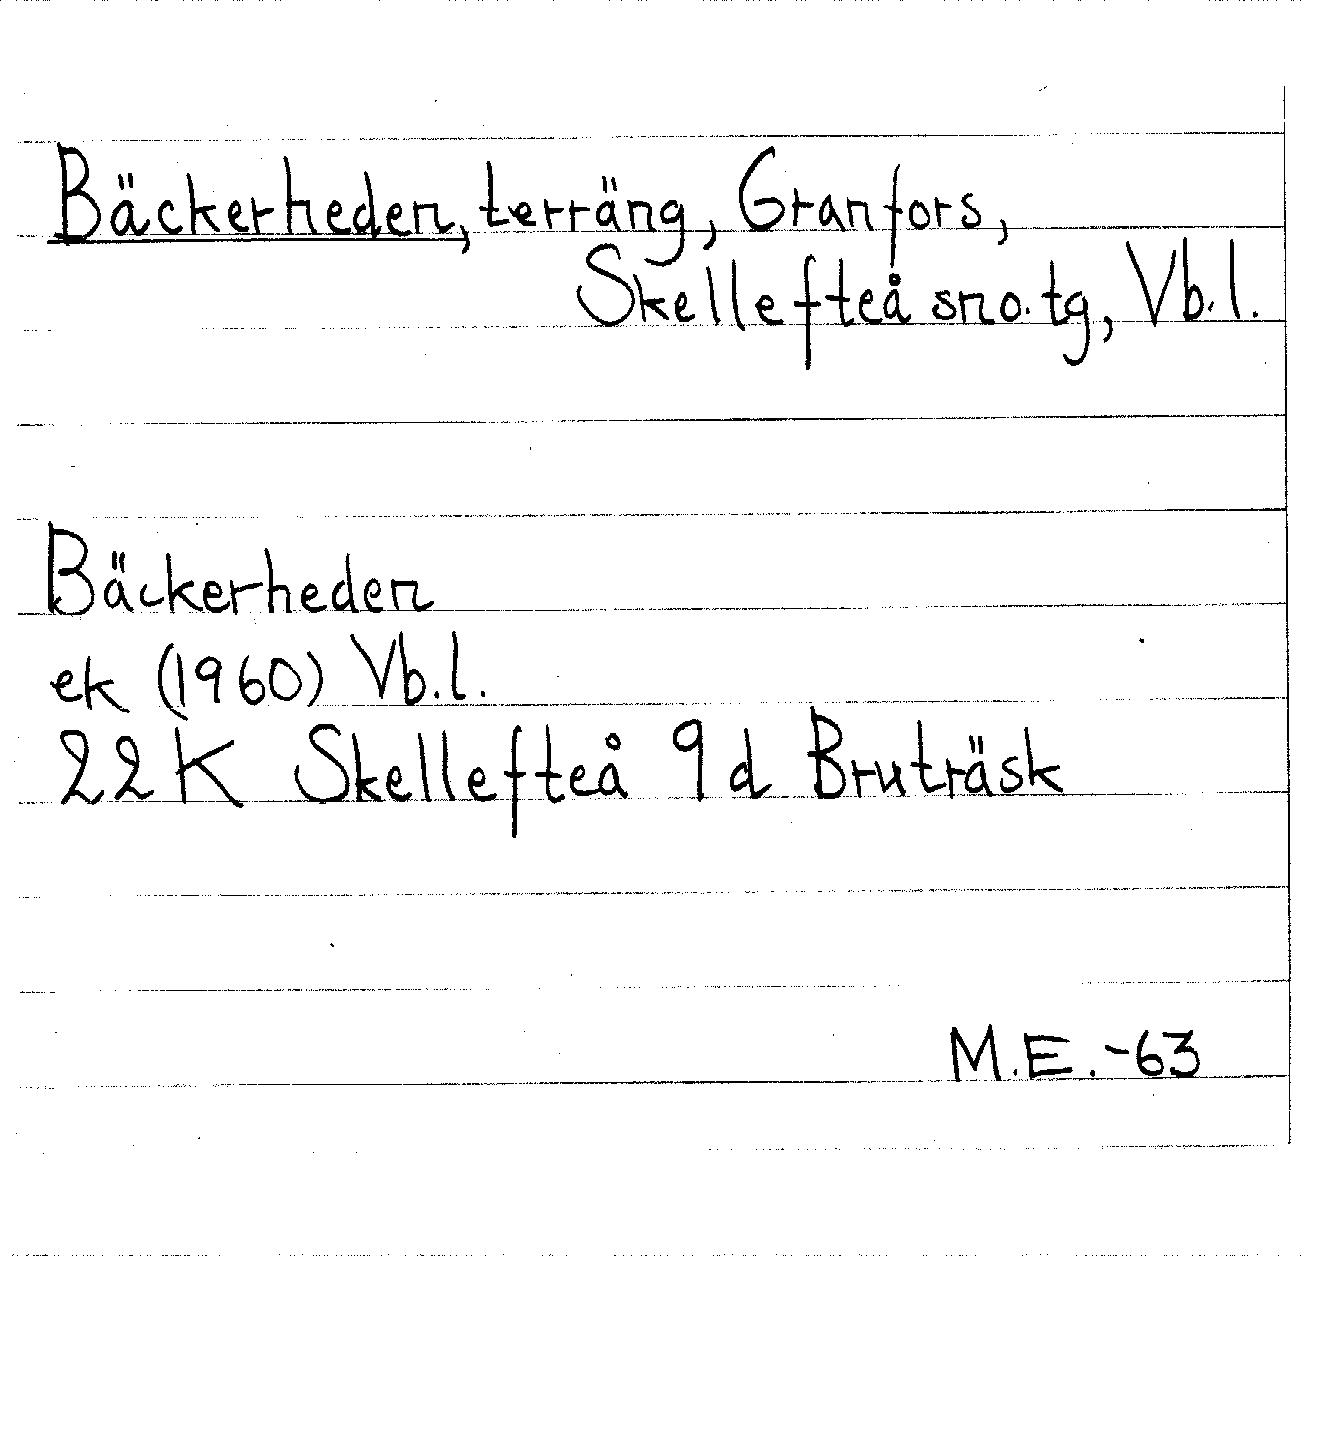 Bäckerheden, terräng, Granfors,
Skellefteå sno. tg, Vb.l.
Bäckerheden
ek (1960) Vb.l.
22K Skellefteå 9d Bruträsk
M.E.-63